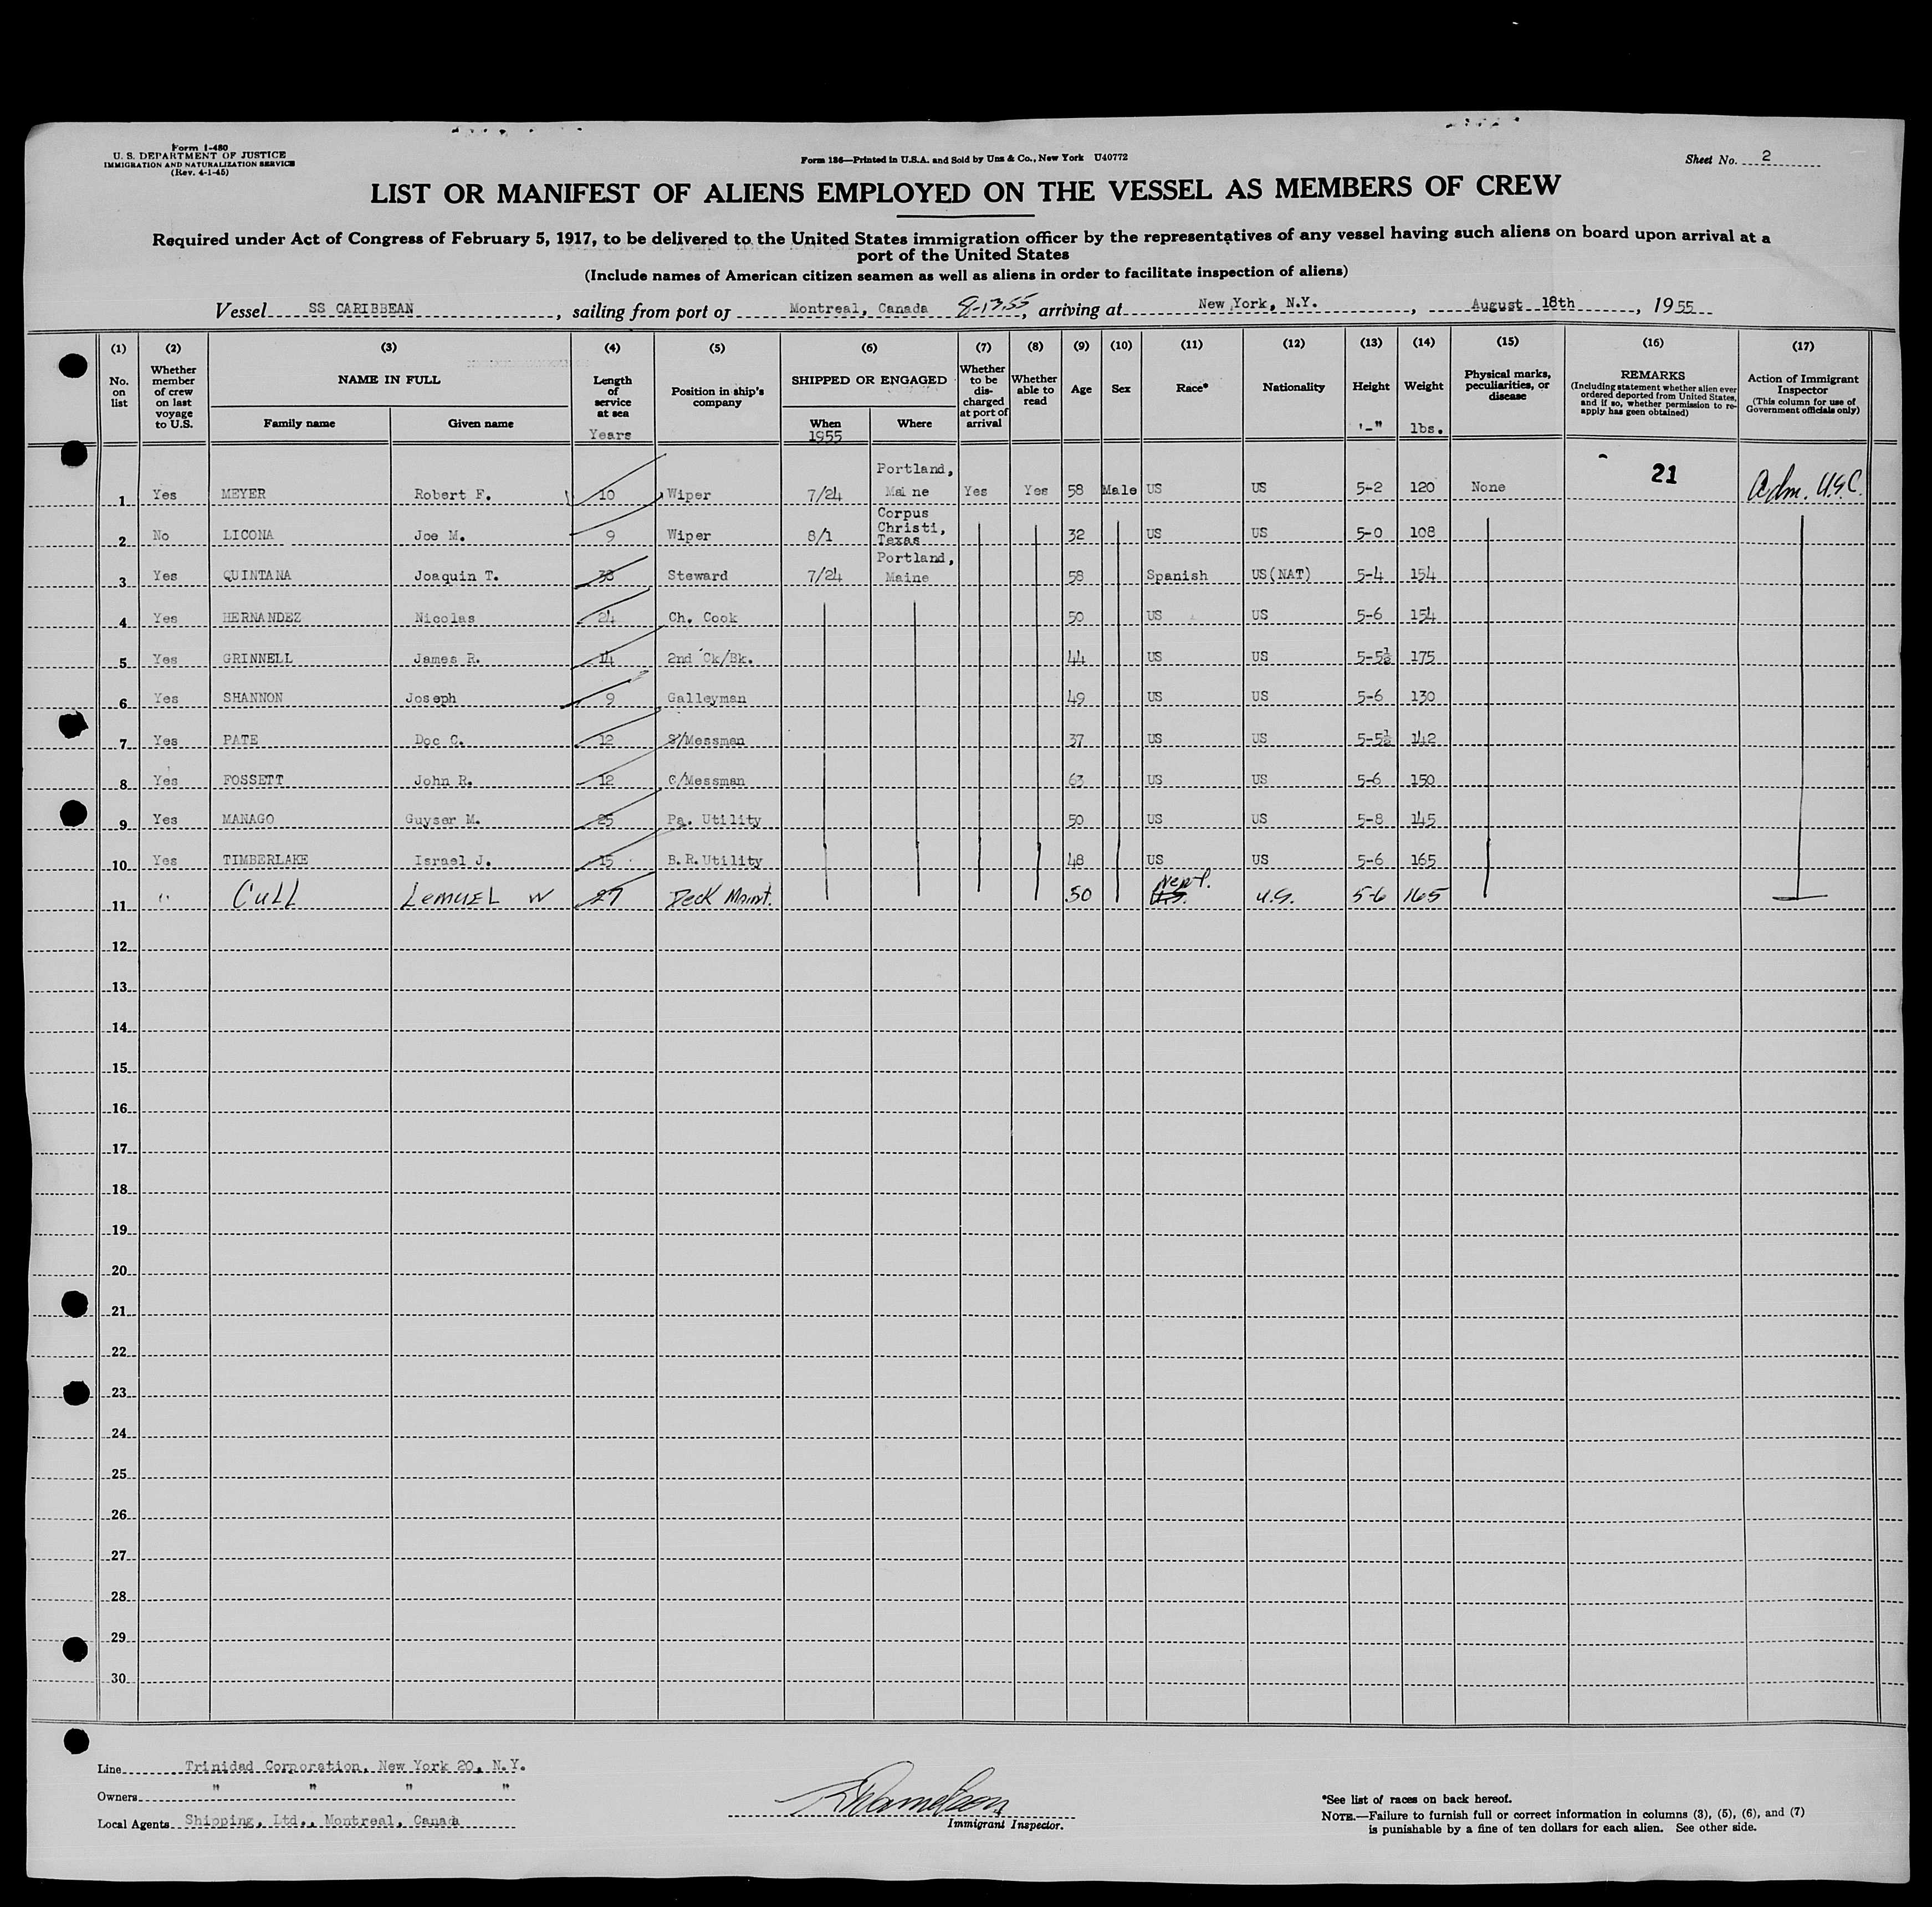 Form I-480
U. S. DEPARTMENT OF JUSTICE
IMMIGRATION AND NATURALIZATION SERVICE
(Rev. 4-1-45)
Form 186—Printed in U.S.A. and Sold by Unz & Co., New York U40772
Sheet No. 2
LIST OR MANIFEST OF ALIENS EMPLOYED ON THE VESSEL AS MEMBERS OF CREW
Required under Act of Congress of February 5, 1917, to be delivered to the United States immigration officer by the representatives of any vessel having such aliens on board upon arrival at a
port of the United States
(Include names of American citizen seamen as well as aliens in order to facilitate inspection of aliens)
Vessel SS CARIBBEAN, sailing from port of Montreal, Canada 8-13-55, arriving at New York, N.Y., August 18th, 1955
(1) (2) (3) (4) (5) (6) (7) (8) (9) (10) (11) (12) (13) (14) (15) (16) (17)
No. on list
Whether member of crew on last voyage to U.S.
NAME IN FULL
Family name Given name
Length of service at sea
Years
Position in ship's company
SHIPPED OR ENGAGED
When Where
1955
Whether to be discharged at port of arrival
Whether able to read
Age
Sex
Race*
Nationality
Height
'-"
Weight
lbs.
Physical marks, peculiarities, or disease
REMARKS
(Including statement whether alien ever ordered deported from United States, and if so, whether permission to re-apply has geen obtained)
Action of Immigrant Inspector
(This column for use of Government officials only)
1 Yes MEYER Robert F. 10 Wiper 7/24 Portland, Maine Yes Yes 58 Male US US 5-2 120 None 21 Adm. U.S.C.
2 No LICONA Joe M. 9 Wiper 8/1 Corpus Christi, Texas 32 US US 5-0 108
3 Yes QUINTANA Joaquin T. 38 Steward 7/24 Portland, Maine 58 Spanish US(NAT) 5-4 154
4 Yes HERNANDEZ Nicolas 24 Ch. Cook 50 US US 5-6 154
5 Yes GRINNELL James R. 14 2nd Ck/Bk. 44 US US 5-5½ 175
6 Yes SHANNON Joseph 9 Galleyman 49 US US 5-6 130
7 Yes PATE Doc C. 12 S/Messman 37 US US 5-5½ 142
8 Yes FOSSETT John R. 12 C/Messman 63 US US 5-6 150
9 Yes MANAGO Guyser M. 25 Pa. Utility 50 US US 5-8 145
10 Yes TIMBERLAKE Israel J. 15 B.R.Utility 48 US US 5-6 165
11 " Cull Lemuel W 27 Deck Maint. 50 U.S. U.S. 5-6 165
12
13
14
15
16
17
18
19
20
21
22
23
24
25
26
27
28
29
30
Line Trinidad Corporation, New York 20, N.Y.
Owners " " " "
Local Agents Shipping, Ltd., Montreal, Canada
Immigrant Inspector.
*See list of races on back hereof.
NOTE.—Failure to furnish full or correct information in columns (3), (5), (6), and (7)
is punishable by a fine of ten dollars for each alien. See other side.